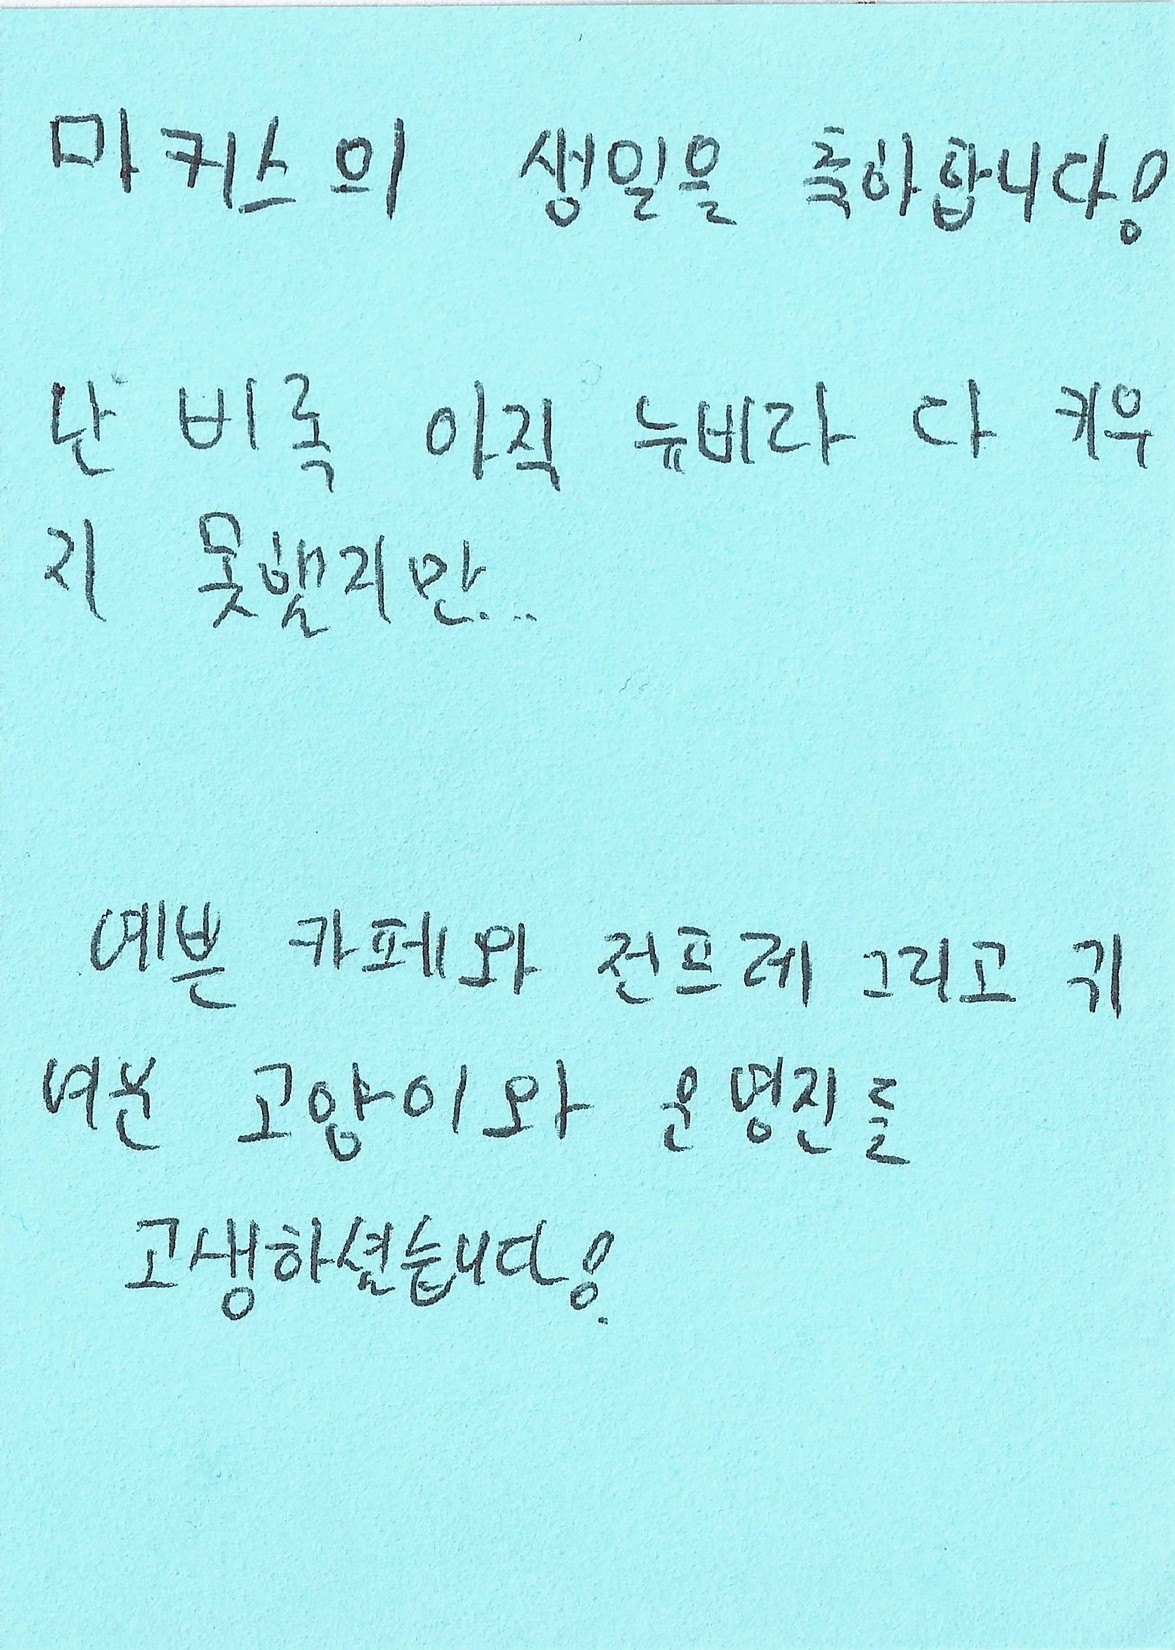 마커스의 생일을 축하합니다!
난 비록 아직 뉴비라 다 키우
지 못했지만...
예쁜 카페와 전프레 그리고 귀
여운 고양이와 운영진들
고생하셨습니다!